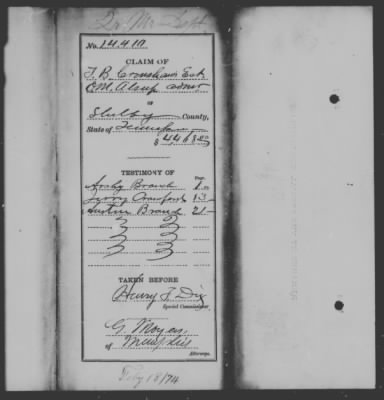 No. 14410
CLAIM OF
T. B. Crenshaws Est
C. M. Alsup admr
OF
Shelby County,
State of Tennessee
$4468.00
TESTIMONY OF Page.
Branch 1
Jerry Crawford 13
Austin Branch 21
TAKEN BEFORE
Henry F. Dix
Special Commissioner.
G. Moyers
of Memphis
Attorneys.
Feby 18/74